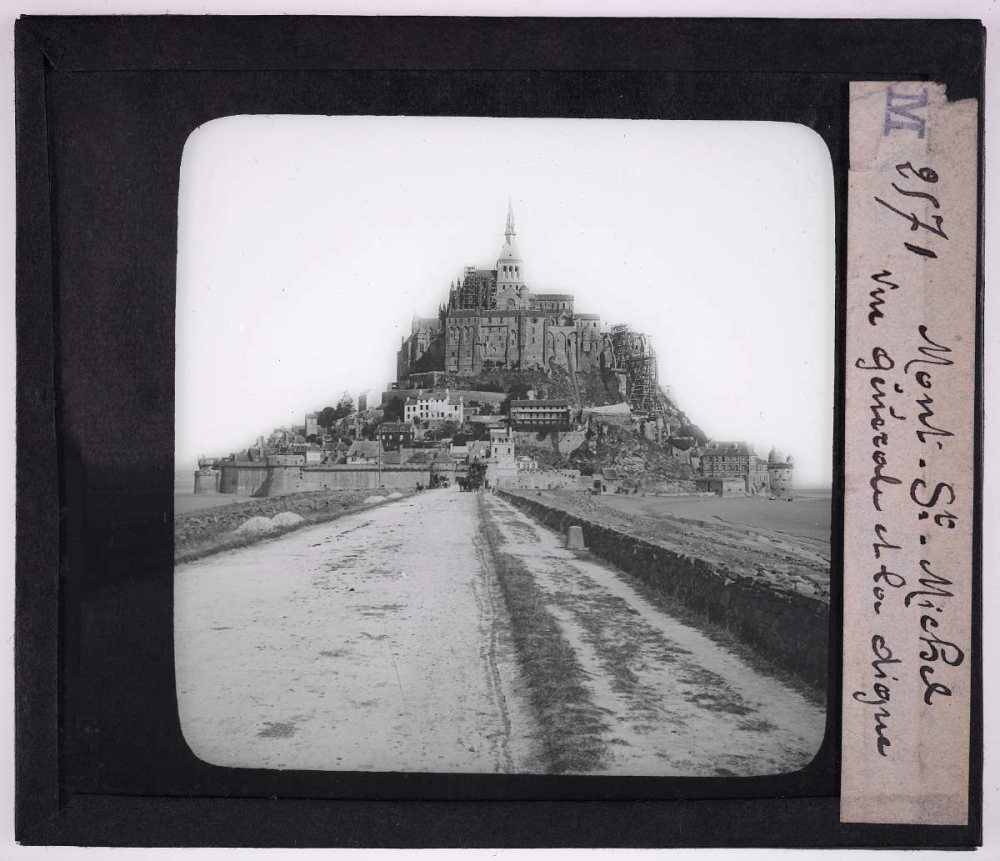 M
2571 Mont-St-Michel
vue générale et la digue